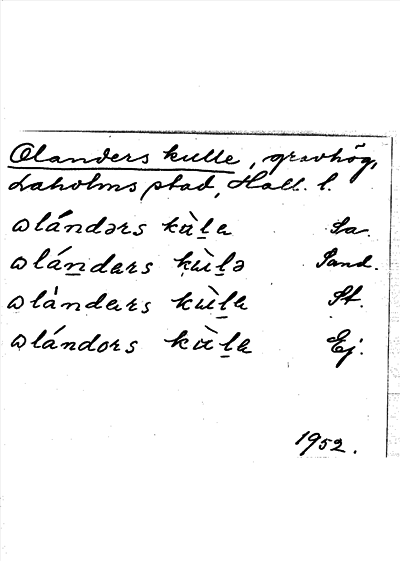 Olanders kulle, gravhög,
Laholms stad, Hall. l.
ωlándərs kùl̲a Sa.
ωlán̲dars kùl̲ə Sand.
ωlàndars kùl̲a St.
ωlándors kùl̲a Ej.
1952.